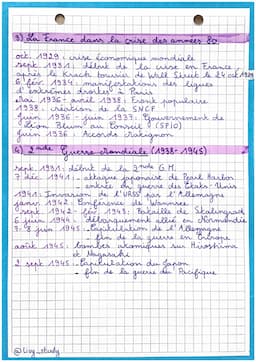 3) La France dans la crise des années 30
oct. 1929 : crise économique mondiale
sept. 1931 : début de la crise en France
après le Krach boursier de Wall Street le 24 oct 1929
6 fév. 1934 : manifestations des ligues
d'extrêmes droites à Paris
Mai 1936 - avril 1938 : Front populaire
1938 : création de la SNCF
Juin 1936 - juin 1937 : Gouvernement de
Léon Blum au Conseil (SFIO)
Juin 1936 : Accords Matignon
4) 2nde Guerre Mondiale (1938-1945)
sept. 1931 : début de la 2nde G.M.
7 déc. 1941 : attaque japonaise de Pearl Harbor
- entrée en guerre des États-Unis
1941 : Invasion de l'URSS par l'Allemagne
janv. 1942 : Conférence de Wannsee
sept. 1942 - fév. 1943 : Bataille de Stalingrad
6 juin 1944 : Débarquement allié en Normandie
7-8 juin 1945 : Capitulation de l'Allemagne
- fin de la guerre en Europe
août 1945 : bombes atomiques sur Hiroshima
et Nagasaki
2 sept. 1945 : Capitulation du Japon
- fin de la guerre du Pacifique